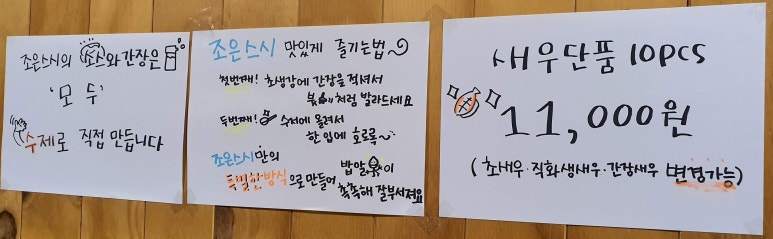 조은스시의 소스와 간장은
'모두'
수제로 직접 만듭니다
조은스시 맛있게 즐기는법~
첫번째! 초생강에 간장을 적셔서
붓처럼 발라드세요
두번째! 수저에 올려서
한 입에 호로록~
조은스시만의 밥알이
특별한방식으로 만들어 촉촉해 잘부서져요
새우단품 10pcs
11,000원
(초새우·직화생새우·간장새우 변경가능)